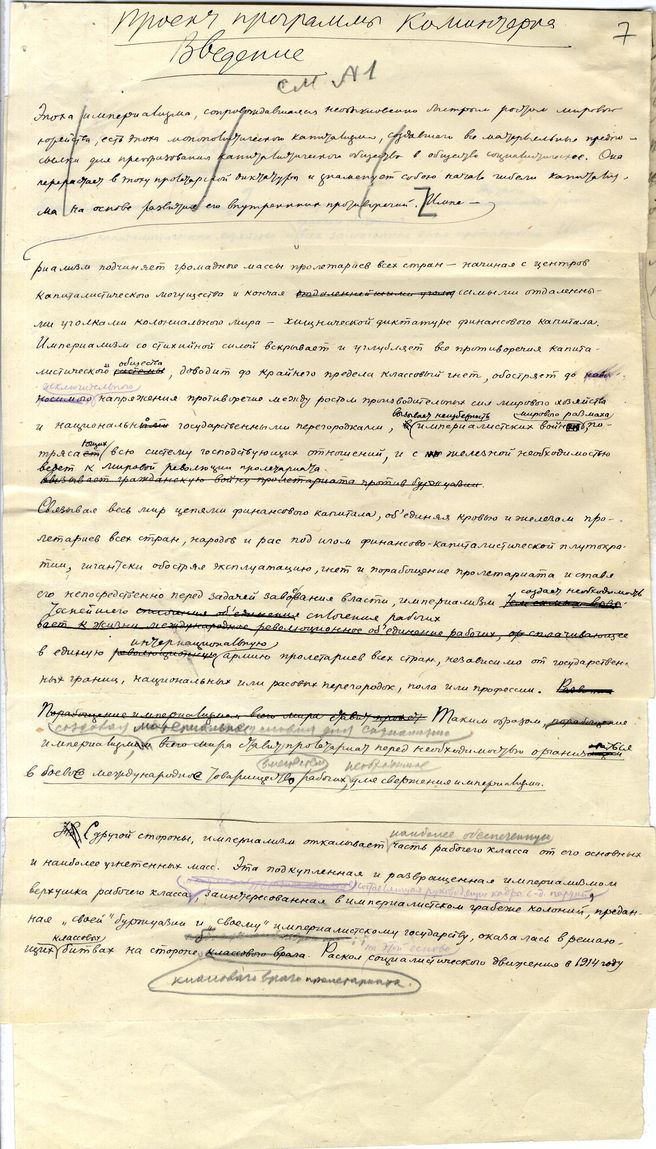 Проект программы Коминтерна
7
Введение
см №1
Эпоха империализма, сопровождавшаяся необыкновенно быстрым ростом мирового
хозяйства, есть эпоха монополистического капитализма, создавшего все материальные предпо-
сылки для преобразования капиталистического общества в общество социалистическое. Она
перерастает в эпоху пролетарской диктатуры и знаменует собою начало гибели капитализ-
ма на основе развития его внутренних противоречий. Импе-
риализм подчиняет громадные массы пролетариев всех стран — начиная с центров
капиталистического могущества и кончая отдаленнейшими углов самыми отдаленны-
ми уголками колониального мира — хищнической диктатуре финансового капитала.
Империализм со стихийной силой вскрывает и углубляет все противоречия капита-
общества
листического системы, доводит до крайнего предела классовый гнет, обостряет до
исключительного
напряжения противоречие между ростом производительных сил мирового хозяйства
вызывает неизбежность мирового размаха,
и национальными государственными перегородками, империалистских войн по-
ющих
трясает всю систему господствующих отношений, и с железной необходимостью
ведет к мировой революции пролетариата.
вызывает гражданскую войну пролетариата против буржуазии.
Связывая весь мир цепями финансового капитала, об'единяя кровью и железом про-
летариев всех стран, народов и рас под игом финансово-капиталистической плутокра-
тии, гигантски обостряя эксплуатацию, гнет и порабощение пролетариата и ставя
создает необходимость
его непосредственно перед задачей завоевания власти, империализм
теснейшего об'единения сплочения рабочих
вает к жизни международное революционное об'единение рабочих, сплачивающее
интернациональную
в единую революционную армию пролетариев всех стран, независимо от государствен-
ных границ, национальных или расовых перегородок, пола или профессии.
Порабощение империализмом всего мира ставит Таким образом, порабощение
создавая материальные условия для социализма
империализмом всего мира ставит пролетариат перед необходимостью организ
необходимое
в боевое международное товарищество рабочих, для свержения империализма.
наиболее обеспеченную
С другой стороны, империализм откалывает часть рабочего класса от его основных
и наиболее угнетенных масс. Эта подкупленная и развращенная империализмом
составляющая руководящие кадры с-д. партий,
верхушка рабочего класса, заинтересованная в империалистском грабеже колоний, предан-
ная „своей" буржуазии и „своему" империалистскому государству, оказалась в решаю-
классовых на этой основе
щих битвах на стороне классового врага. Раскол социалистического движения в 1914 году
классового врага пролетариата.